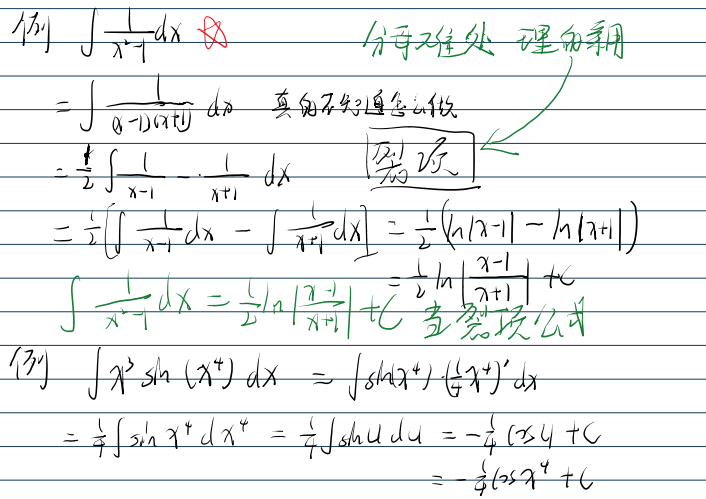 例 ∫ 1/(x²-1) dx ☆ 分母难处理的亲用
= ∫ 1/((x-1)(x+1)) dx 真的不知道怎么做
= 1/2 ∫ 1/(x-1) - 1/(x+1) dx 裂项
= 1/2 [∫ 1/(x-1) dx - ∫ 1/(x+1) dx] = 1/2 (ln|x-1| - ln|x+1|)
= 1/2 ln|(x-1)/(x+1)| + C
∫ 1/(x²-1) dx = 1/2 ln|(x-1)/(x+1)| + C 当裂项公式
例 ∫ x³ sin (x⁴) dx = ∫ sin(x⁴)·(1/4 x⁴)' dx
= 1/4 ∫ sin x⁴ dx⁴ = 1/4 ∫ sin u du = -1/4 cos u + C
= -1/4 cos x⁴ + C